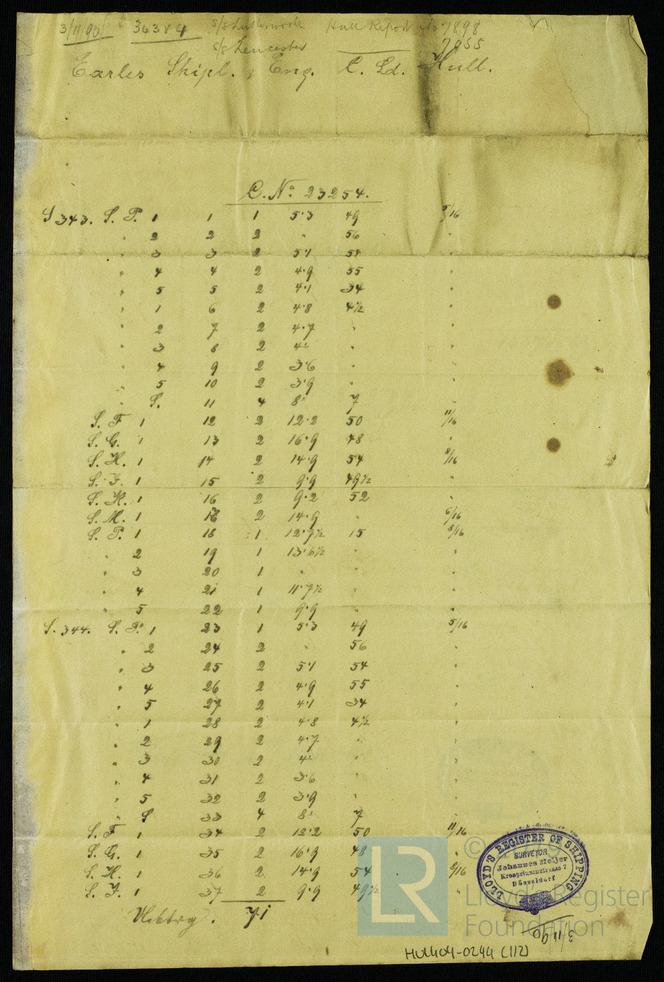 3/11/90 36384 S/S Hull Report No 7898
S/S Leicester 7955
Earles Shipb. & Eng. C. Ld. Hull.
C. No 23254.
S 343. S. P. 1 1 1 5·3 49 5/16
" 2 2 2 " 56 "
" 3 3 2 5·1 54 "
" 4 4 2 4·9 55 "
" 5 5 2 4·1 34 "
" 1 6 2 4·8 4½ "
" 2 7 2 4·7 " "
" 3 8 2 4·" " "
" 4 9 2 3·6 " "
" 5 10 2 3·9 " "
" S. 11 4 8·" 7 "
S. F 1 12 2 12·2 50 11/16
S. G. 1 13 2 16·9 48 "
S. H. 1 14 2 14·9 54 9/16
S. J. 1 15 2 9·9 49½ "
S. K. 1 16 2 9·2 52 "
S. M. 1 2 14·9 " 6/16
S. P. 1 18 1 12·7½ 15 5/16
" 2 19 1 13·6½ " "
" 3 20 1 " " "
" 4 21 1 11·7½ " "
" 5 22 1 9·9 " "
S. 344. S. P. 1 23 1 5·3 49 5/16
" 2 24 2 " 56 "
" 3 25 2 5·1 54 "
" 4 26 2 4·9 55 "
" 5 27 2 4·1 34 "
" 1 28 2 4·8 4½ "
" 2 29 2 4·7 " "
" 3 30 2 4·" " "
" 4 31 2 3·6 " "
" 5 32 2 3·9 " "
" S 33 4 8·" 7 "
S. F 1 34 2 12·2 50 11/16
S. G. 1 35 2 16·9 48 "
S. H. 1 36 2 14·9 54 9/16
S. J. 1 37 2 9·9 49½ "
71
LLOYD'S REGISTER OF SHIPPING
SURVEYOR
Johannes Meijer
Kronprinzenstrasse 7
Düsseldorf
3/11 90
LR
©
Lloyd's Register
Foundation
HUL404-0244 (1/2)